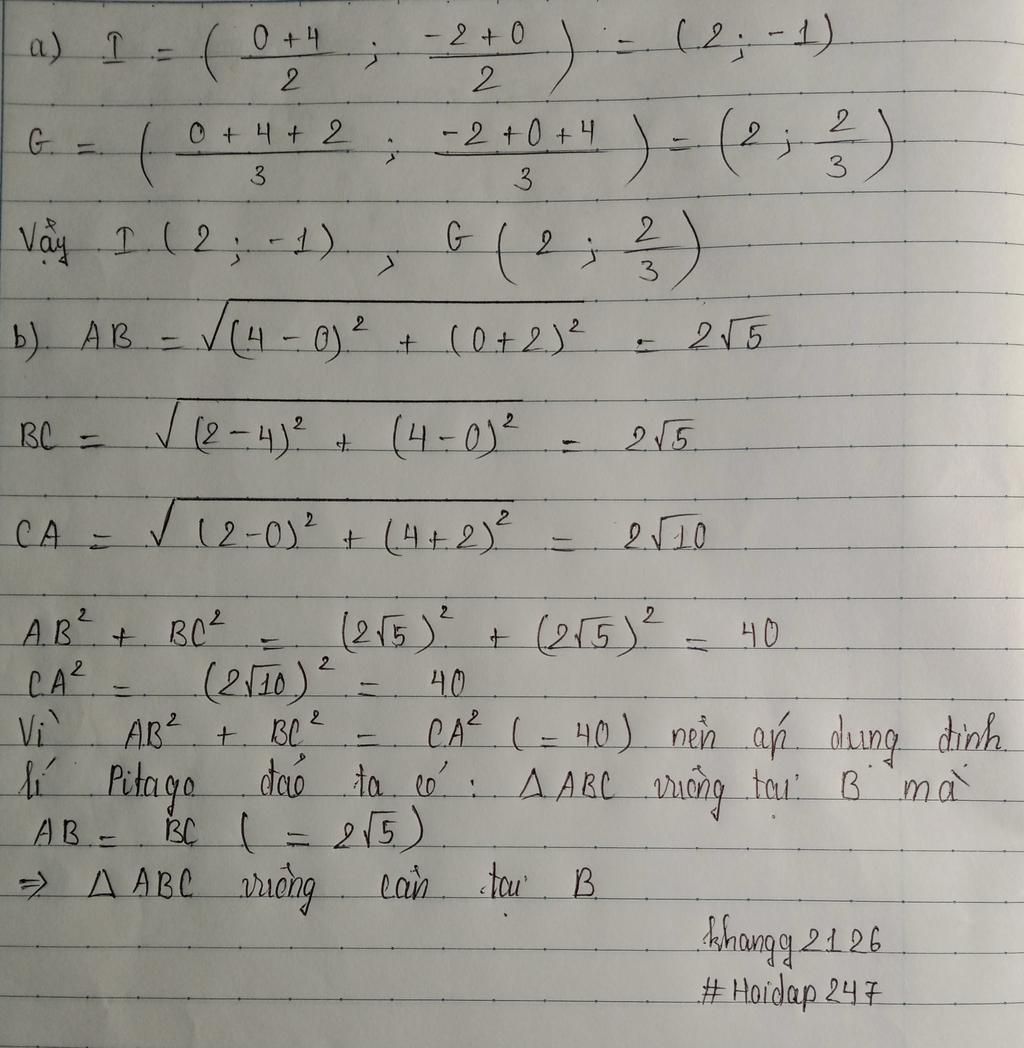 a) I = ( (0 + 4)/2 ; (-2 + 0)/2 ) = (2 ; -1)
G = ( (0 + 4 + 2)/3 ; (-2 + 0 + 4)/3 ) = (2 ; 2/3)
Vậy I (2 ; -1) , G (2 ; 2/3)
b). AB = √((4 - 0)² + (0 + 2)²) = 2√5
BC = √((2 - 4)² + (4 - 0)²) = 2√5
CA = √((2 - 0)² + (4 + 2)²) = 2√10
AB² + BC² = (2√5)² + (2√5)² = 40
CA² = (2√10)² = 40
Vì AB² + BC² = CA² (= 40) nên áp dụng định
lí Pitago đảo ta có : Δ ABC vuông tại B mà
AB = BC ( = 2√5)
⇒ Δ ABC vuông cân tại B
khangg2126
#Hoidap247